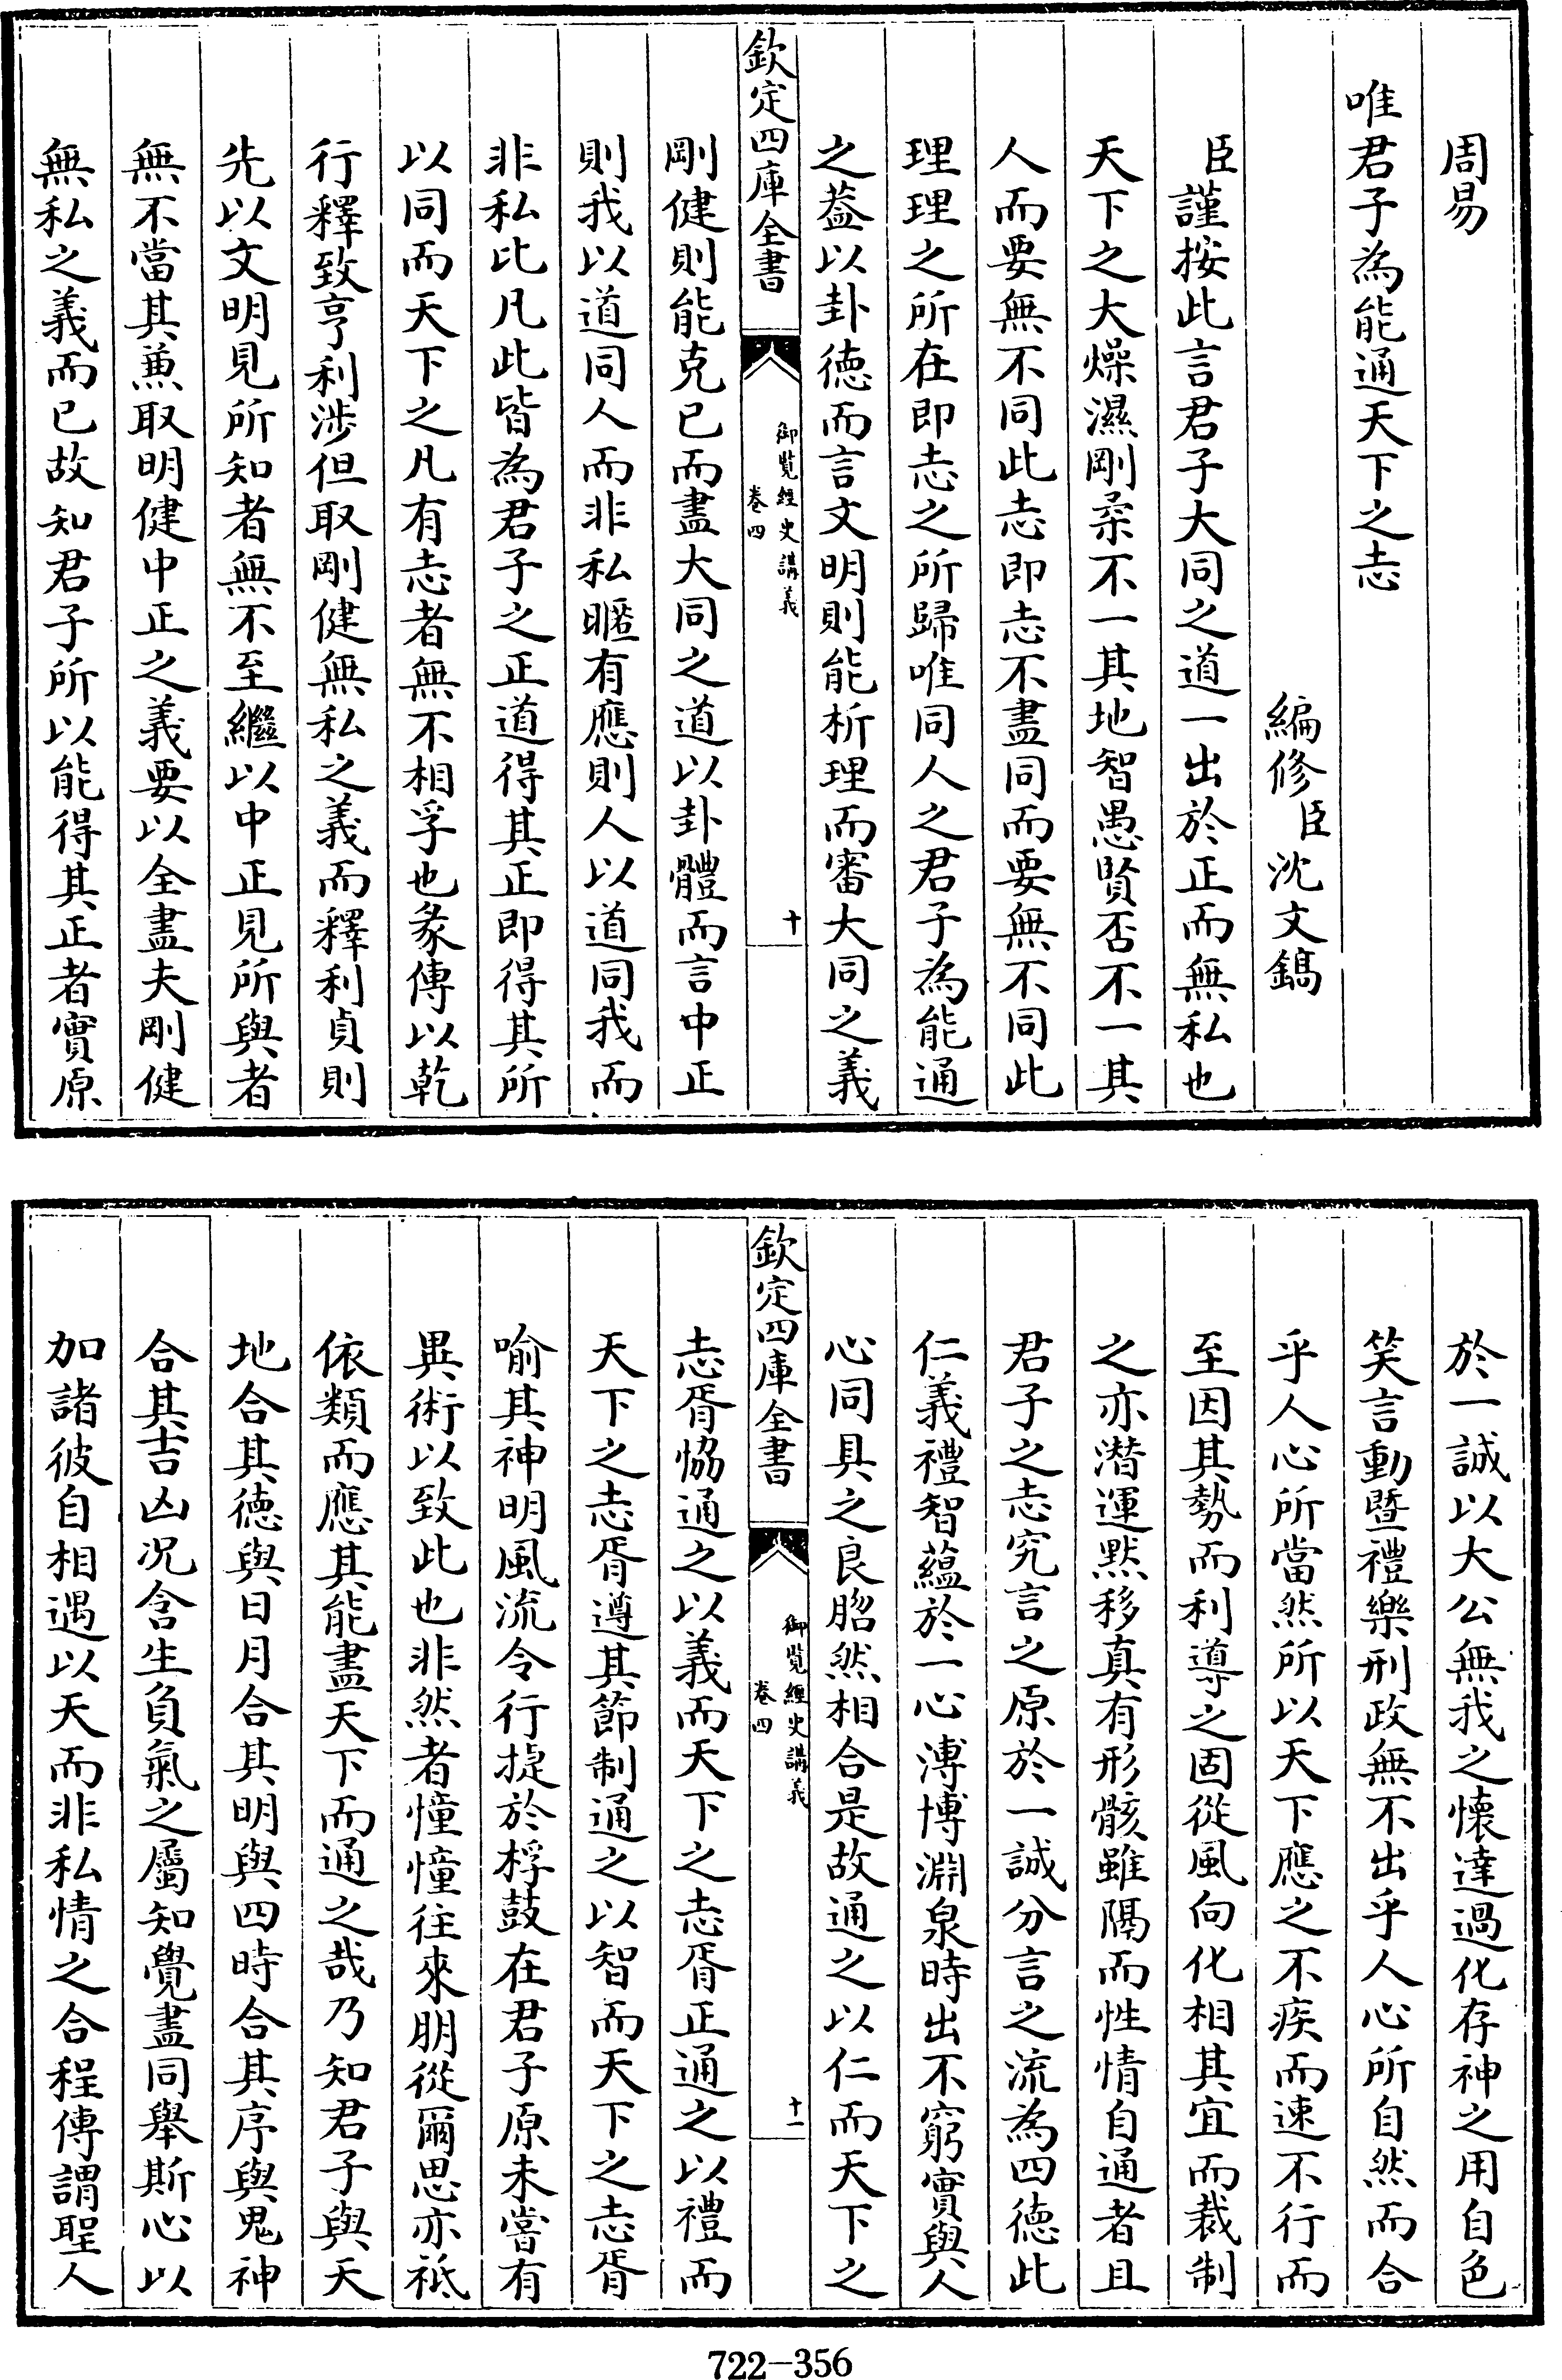 周易
唯君子為能通天下之志
編修臣沈文鎬
臣謹按此言君子大同之道一出於正而無私也
天下之大燥濕剛柔不一其地智愚賢否不一其
人而要無不同此志即志不盡同而要無不同此
理理之所在即志之所歸唯同人之君子為能通
之葢以卦德而言文明則能析理而審大同之義
欽定四庫全書
御覽經史講義
卷四
十
剛健則能克已而盡大同之道以卦體而言中正
則我以道同人而非私暱有應則人以道同我而
非私比凡此皆為君子之正道得其正即得其所
以同而天下之凡有志者無不相孚也彖傳以乾
行釋致亨利涉但取剛健無私之義而釋利貞則
先以文明見所知者無不至繼以中正見所與者
無不當其兼取明健中正之義要以全盡夫剛健
無私之義而已故知君子所以能得其正者實原
於一誠以大公無我之懷達過化存神之用自色
笑言動暨禮樂刑政無不出乎人心所自然而合
乎人心所當然所以天下應之不疾而速不行而
至因其勢而利導之固從風向化相其宜而裁制
之亦潜運黙移真有形骸雖隔而性情自通者且
君子之志究言之原於一誠分言之流為四德此
仁義禮智蘊於一心溥博淵泉時出不窮實與人
心同具之良脗然相合是故通之以仁而天下之
欽定四庫全書
御覽經史講義
卷四
十一
志胥恊通之以義而天下之志胥正通之以禮而
天下之志胥遵其節制通之以智而天下之志胥
喻其神明風流令行捷於桴鼓在君子原未嘗有
異術以致此也非然者憧憧往來朋從爾思亦祗
依類而應其能盡天下而通之哉乃知君子與天
地合其德與日月合其明與四時合其序與鬼神
合其吉凶况含生負氣之屬知覺盡同舉斯心以
加諸彼自相遇以天而非私情之合程傳謂聖人
722-356